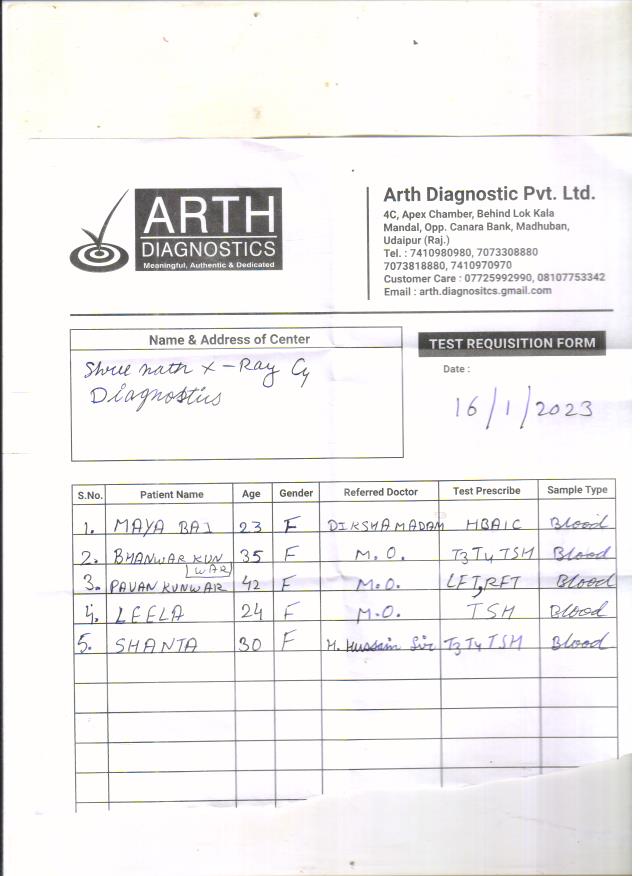 ARTH
DIAGNOSTICS
Meaningful, Authentic & Dedicated
Arth Diagnostic Pvt. Ltd.
4C, Apex Chamber, Behind Lok Kala
Mandal, Opp. Canara Bank, Madhuban,
Udaipur (Raj.)
Tel. : 7410980980, 7073308880
7073818880, 7410970970
Customer Care : 07725992990, 08107753342
Email : arth.diagnositcs.gmail.com
Name & Address of Center
Shree nath X-Ray Cy
Diagnostics
TEST REQUISITION FORM
Date :
16/1/2023
S.No. Patient Name Age Gender Referred Doctor Test Prescribe Sample Type
1. MAYA BAI 23 F DIKSHA MADAM HBA1C Blood
2. BHANWAR KUN 35 F M.O. T3 T4 TSH Blood
WAR
3. PAVAN KUNWAR 42 F M.O. LFT, RFT Blood
4. LEELA 24 F M.O. TSH Blood
5. SHANTA 30 F H. Hussain Sir T3 T4 TSH Blood